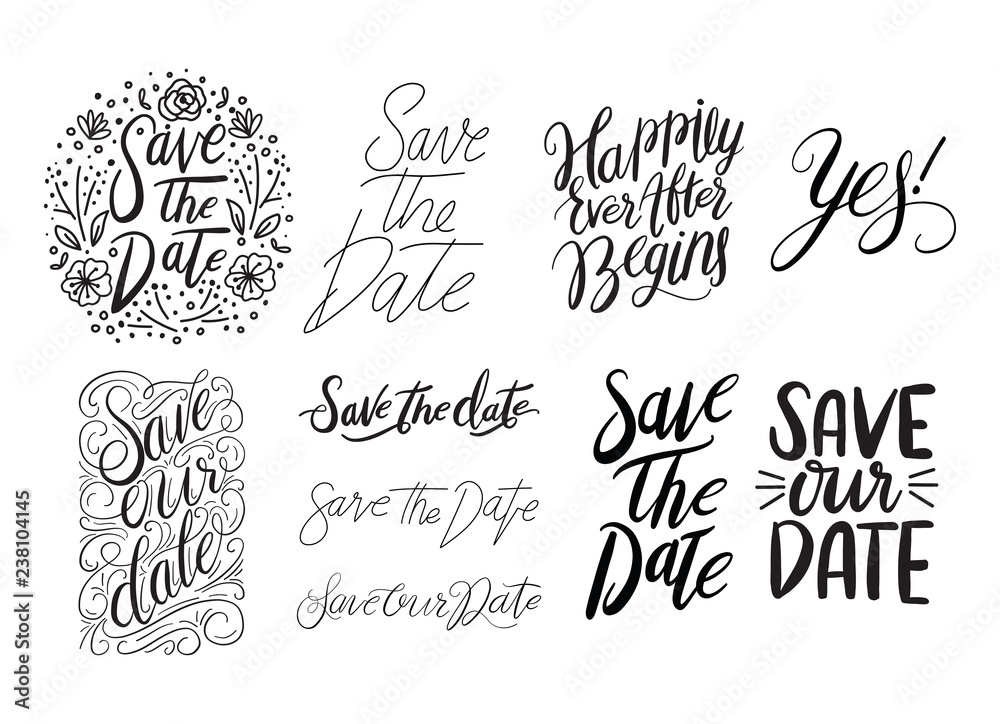 Save
the
Date
Save
the
Date
Happily
Ever After
Begins
Yes!
Save
our
date
Save the date
Save the Date
Save our Date
Save
The
Date
SAVE
our
DATE
Adobe Stock | #238104145